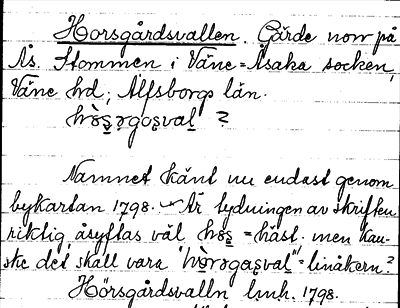 Horsgårdsvallen. Gärde norr på
Ås. Stommen i Väne-Åsaka socken,
Väne hd, Älfsborgs län.
hòs̱ǝgas̱val ?
Namnet känt nu endast genom
bykartan 1798. - Är tydningen av skriften
riktig, åsyftas väl hos̱ = häst, men kan-
ske det skall vara "hòrǝgas̱val" = linåkern?
Hörsgårdsvalln lmk. 1798.